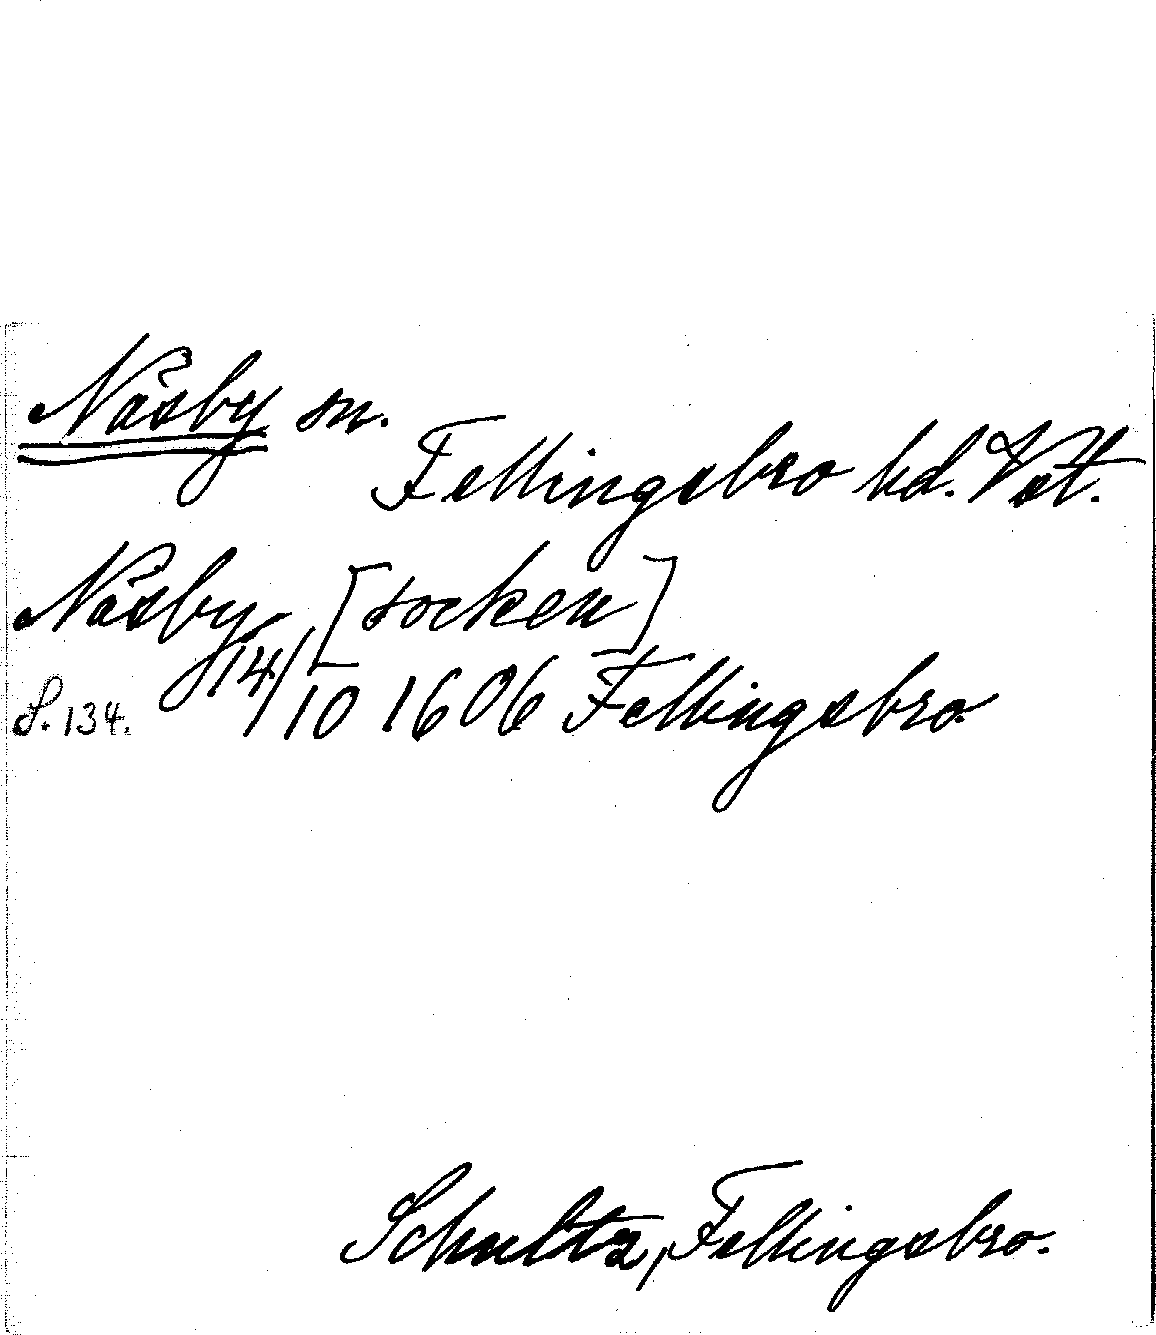 Näsby sn.
Fellingsbro hd. Vstm.
Näsby [socken]
S. 134. 14/10 1606 Fellingsbro.
Schultz, Fellingsbro.